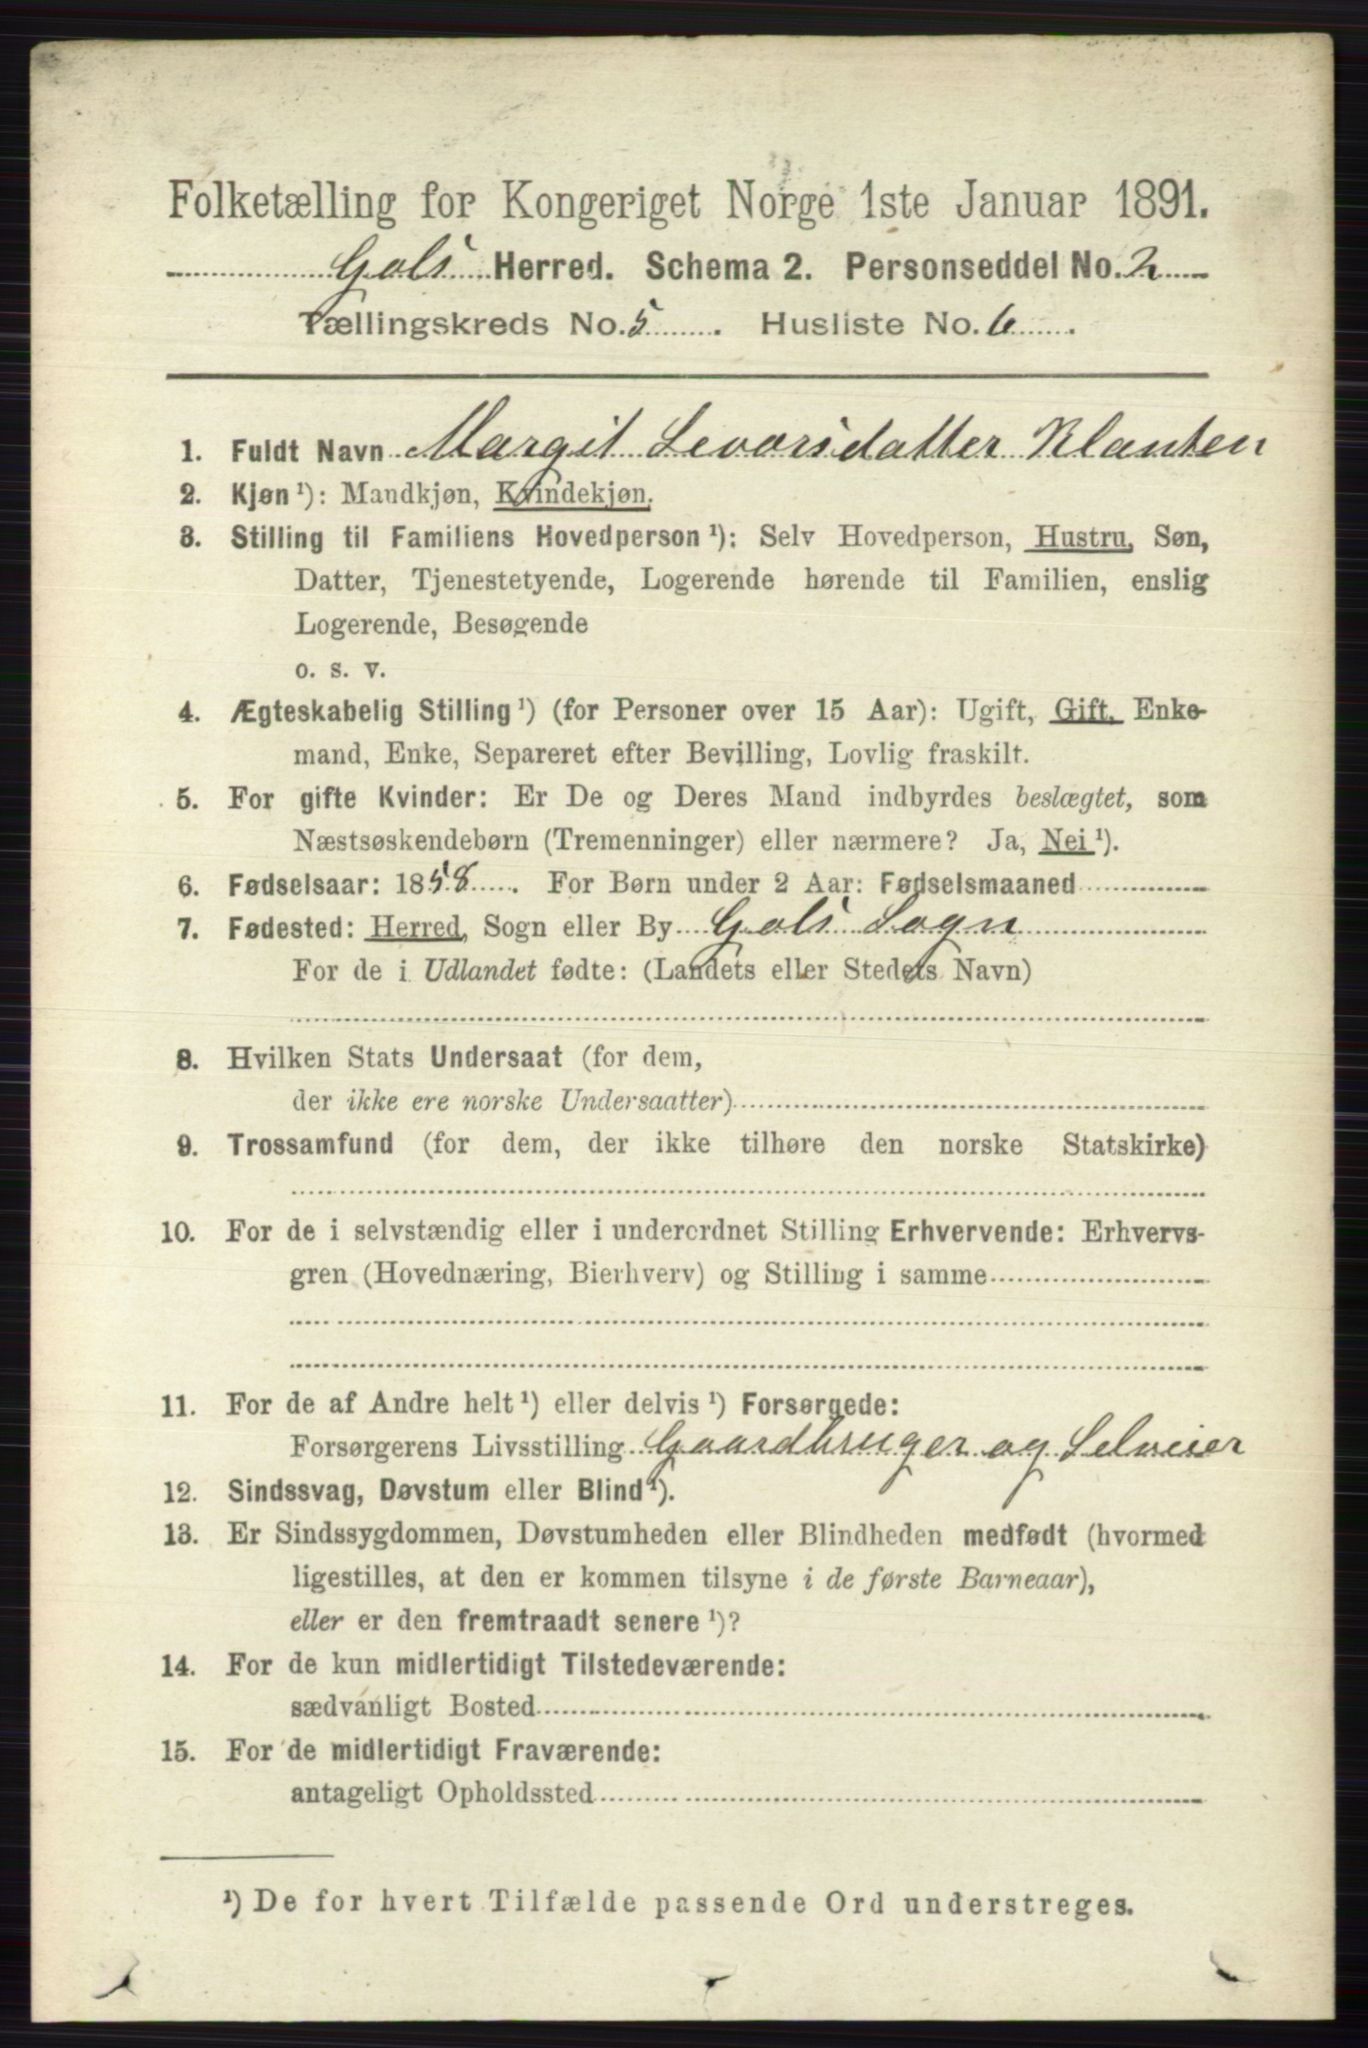 Folketælling for Kongeriget Norge 1ste Januar 1891.
Gols Herred. Schema 2. Personseddel No. 2
Tællingskreds No. 5. Husliste No. 6.
1. Fuldt Navn Margit Levorsdatter Klanten
2. Kjøn ¹): Mandkjøn, Kvindekjøn.
3. Stilling til Familiens Hovedperson ¹): Selv Hovedperson, Hustru, Søn,
Datter, Tjenestetyende, Logerende hørende til Familien, enslig
Logerende, Besøgende
o. s. v.
4. Ægteskabelig Stilling ¹) (for Personer over 15 Aar): Ugift, Gift, Enke-
mand, Enke, Separeret efter Bevilling, Lovlig fraskilt.
5. For gifte Kvinder: Er De og Deres Mand indbyrdes beslægtet, som
Næstsøskendebørn (Tremenninger) eller nærmere? Ja, Nei ¹).
6. Fødselsaar: 1858. For Børn under 2 Aar: Fødselsmaaned
7. Fødested: Herred, Sogn eller By Gols Sogn
For de i Udlandet fødte: (Landets eller Stedets Navn)
8. Hvilken Stats Undersaat (for dem,
der ikke ere norske Undersaatter)
9. Trossamfund (for dem, der ikke tilhøre den norske Statskirke)
10. For de i selvstændig eller i underordnet Stilling Erhvervende: Erhvervs-
gren (Hovednæring, Bierhverv) og Stilling i samme
11. For de af Andre helt ¹) eller delvis ¹) Forsørgede:
Forsørgerens Livsstilling Gaardbruger og Selveier
12. Sindssvag, Døvstum eller Blind ¹).
13. Er Sindssygdommen, Døvstumheden eller Blindheden medfødt (hvormed
ligestilles, at den er kommen tilsyne i de første Barneaar),
eller er den fremtraadt senere ¹)?
14. For de kun midlertidigt Tilstedeværende:
sædvanligt Bosted
15. For de midlertidigt Fraværende:
antageligt Opholdssted
¹) De for hvert Tilfælde passende Ord understreges.